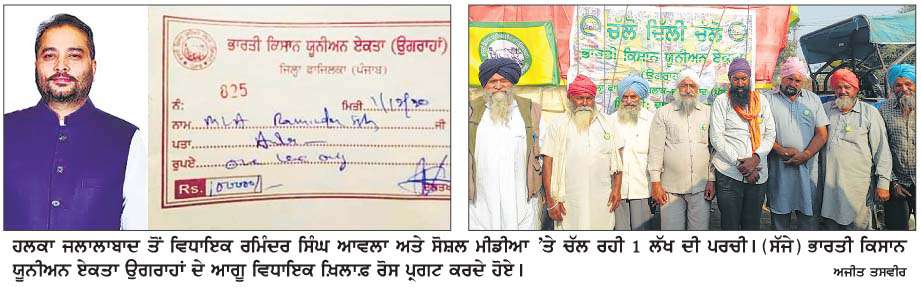 ਭਾਰਤੀ ਕਿਸਾਨ ਯੂਨੀਅਨ ਏਕਤਾ (ਉਗਰਾਹਾਂ)
ਜ਼ਿਲ੍ਹਾ ਫਾਜ਼ਿਲਕਾ (ਪੰਜਾਬ)
825
ਨੰ: ਮਿਤੀ 1/12/20
ਨਾਮ MLA Raminder Singh ਜੀ
ਪਤਾ
ਰੁਪਏ
Rs.
ਚੱਲੋ ਦਿੱਲੀ ਚੱਲੋ
ਭਾਰਤੀ ਕਿਸਾਨ ਯੂਨੀਅਨ ਏਕਤਾ
(ਉਗਰਾਹਾਂ)
ਹਲਕਾ ਜਲਾਲਾਬਾਦ ਤੋਂ ਵਿਧਾਇਕ ਰਮਿੰਦਰ ਸਿੰਘ ਆਵਲਾ ਅਤੇ ਸੋਸ਼ਲ ਮੀਡੀਆ 'ਤੇ ਚੱਲ ਰਹੀ 1 ਲੱਖ ਦੀ ਪਰਚੀ। (ਸੱਜੇ) ਭਾਰਤੀ ਕਿਸਾਨ
ਯੂਨੀਅਨ ਏਕਤਾ ਉਗਰਾਹਾਂ ਦੇ ਆਗੂ ਵਿਧਾਇਕ ਖ਼ਿਲਾਫ਼ ਰੋਸ ਪ੍ਰਗਟ ਕਰਦੇ ਹੋਏ।
ਅਜੀਤ ਤਸਵੀਰ